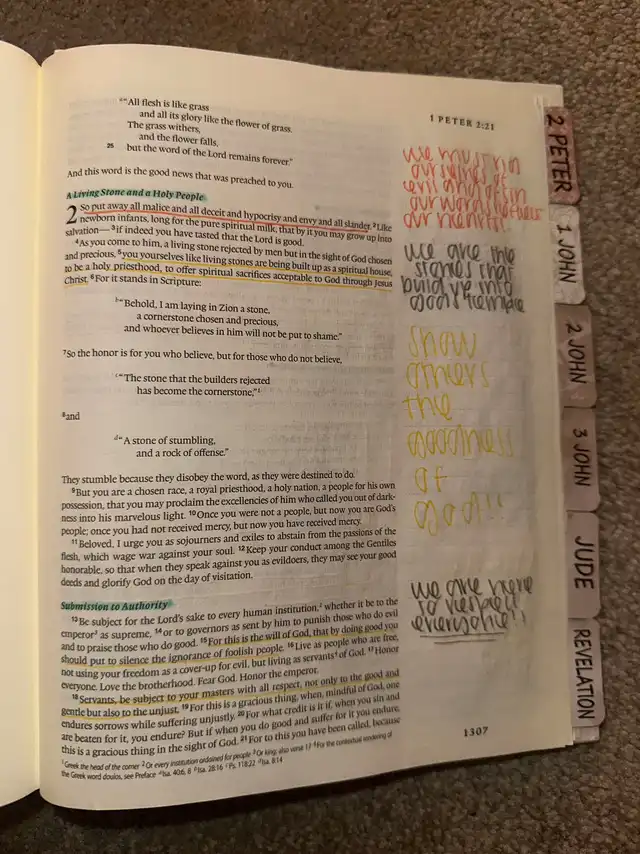 1 PETER 2:21
a“All flesh is like grass
and all its glory like the flower of grass.
The grass withers,
and the flower falls,
25 but the word of the Lord remains forever.”
And this word is the good news that was preached to you.
A Living Stone and a Holy People
2 So put away all malice and all deceit and hypocrisy and envy and all slander. 2Like
newborn infants, long for the pure spiritual milk, that by it you may grow up into
salvation—3if indeed you have tasted that the Lord is good.
4As you come to him, a living stone rejected by men but in the sight of God chosen
and precious, 5you yourselves like living stones are being built up as a spiritual house,
to be a holy priesthood, to offer spiritual sacrifices acceptable to God through Jesus
Christ. 6For it stands in Scripture:
b“Behold, I am laying in Zion a stone,
a cornerstone chosen and precious,
and whoever believes in him will not be put to shame.”
7So the honor is for you who believe, but for those who do not believe,
c“The stone that the builders rejected
has become the cornerstone,”1
8and
d“A stone of stumbling,
and a rock of offense.”
They stumble because they disobey the word, as they were destined to do.
9But you are a chosen race, a royal priesthood, a holy nation, a people for his own
possession, that you may proclaim the excellencies of him who called you out of dark-
ness into his marvelous light. 10Once you were not a people, but now you are God's
people; once you had not received mercy, but now you have received mercy.
11Beloved, I urge you as sojourners and exiles to abstain from the passions of the
flesh, which wage war against your soul. 12Keep your conduct among the Gentiles
honorable, so that when they speak against you as evildoers, they may see your good
deeds and glorify God on the day of visitation.
Submission to Authority
13Be subject for the Lord's sake to every human institution,2 whether it be to the
emperor3 as supreme, 14or to governors as sent by him to punish those who do evil
and to praise those who do good. 15For this is the will of God, that by doing good you
should put to silence the ignorance of foolish people. 16Live as people who are free,
not using your freedom as a cover-up for evil, but living as servants4 of God. 17Honor
everyone. Love the brotherhood. Fear God. Honor the emperor.
18Servants, be subject to your masters with all respect, not only to the good and
gentle but also to the unjust. 19For this is a gracious thing, when, mindful of God, one
endures sorrows while suffering unjustly. 20For what credit is it if, when you sin and
are beaten for it, you endure? But if when you do good and suffer for it you endure,
this is a gracious thing in the sight of God. 21For to this you have been called, because
1 Greek the head of the corner 2 Or every institution ordained for people 3 Or king; also verse 17 4 For the contextual rendering of
the Greek word doulos, see Preface a Isa. 40:6, 8 b Isa. 28:16 c Ps. 118:22 d Isa. 8:14
1307
we must
ourselves of
evil
our
we are the
stones that
build up into
God's temple
show
others
the
goodness
of
God!!
we are here
to respect
everyone!!
2 PETER
1 JOHN
2 JOHN
3 JOHN
JUDE
REVELATION